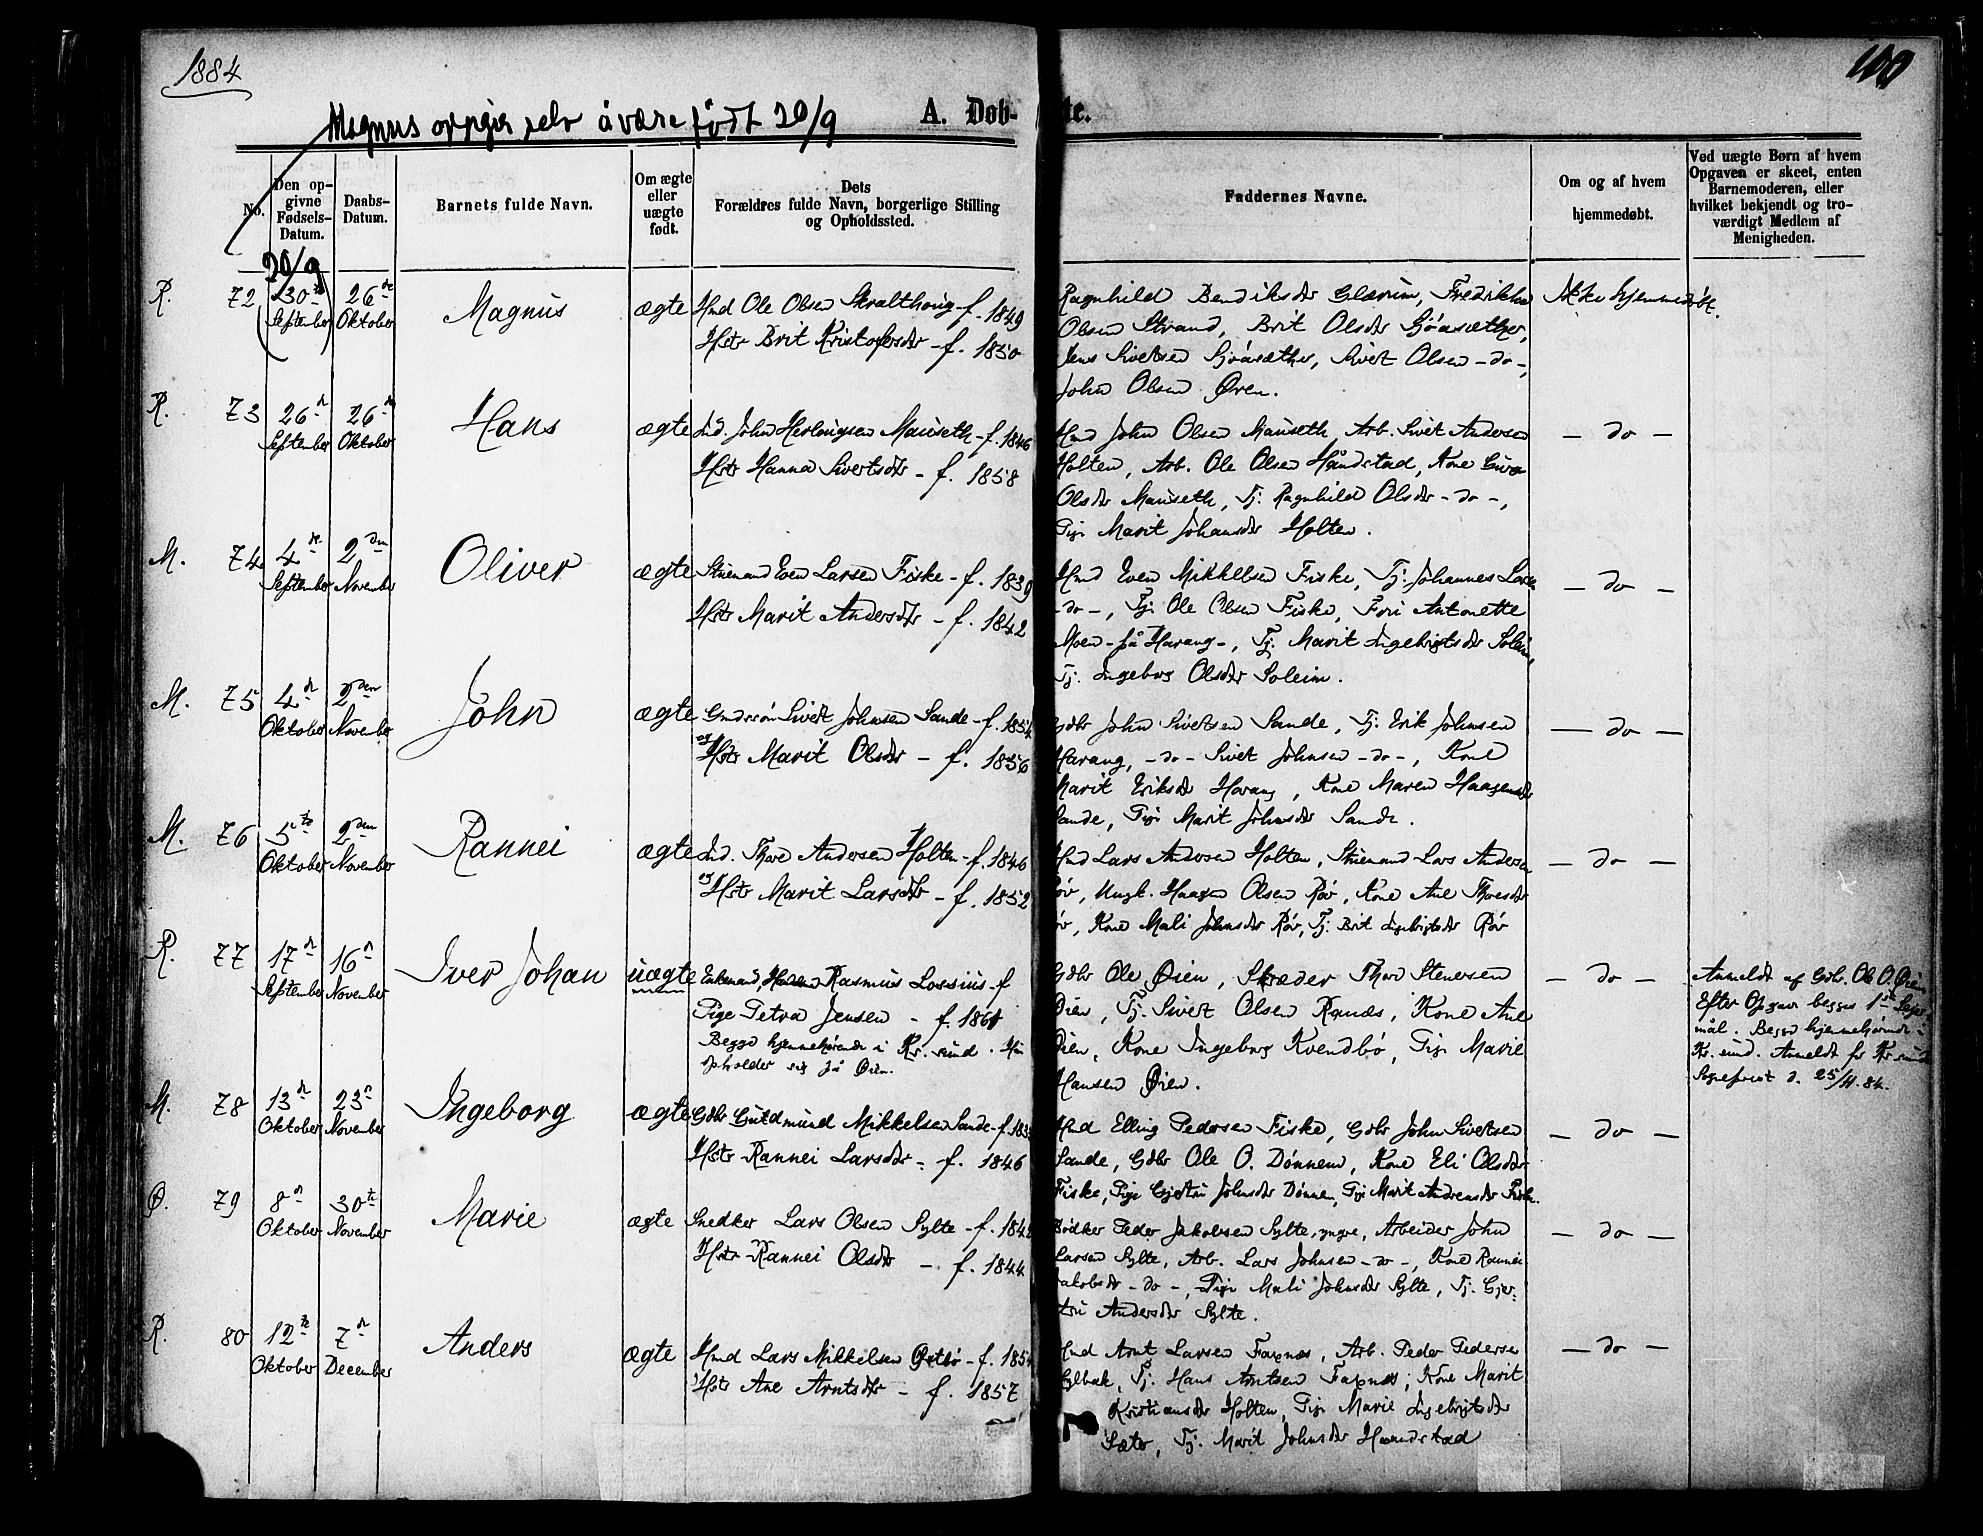 1884
100
Magnus oppgir selv å være født 20/9
A. Døb-
te.
No.
Den op-
givne
Fødsels-
Datum.
Daabs-
Datum.
Barnets fulde Navn.
Om ægte
eller
uægte
født.
Dets
Forældres fulde Navn, borgerlige Stilling
og Opholdssted.
Faddernes Navne.
Om og af hvem
hjemmedøbt.
Ved uægte Børn af hvem
Opgaven er skeet, enten
Barnemoderen, eller
hvilket bekjendt og tro-
værdigt Medlem af
Menigheden.
20/9
R. 72 30te September 26de Oktober Magnus ægte Hmd Ole Olsen Skralthoug - f. 1849
Hstr Brit Kristofersdtr - f. 1850
Ragnhild Bendiksdtr Glærum, Fredrikke
Olsen Strand, Brit Olsdtr Sjöasæther,
Jens Sivertsen Sjöasæther, Sivert Olsen - do -,
John Olsen Øren.
Ikke hjemmedøbt.
R. 73 26de September 26de Oktober Hans ægte Ind. John Herlougsen Mauseth - f. 1846
Hstr Hanna Sivertsdtr - f. 1858
Hmd John Olsen Mauseth, Arb. Sivert Andersen
Holten, Arb. Ole Olsen Håndstad, Kone Guro
Olsdtr Mauseth, Tj. Ragnhild Olsdtr - do -,
Pige Marit Johansdtr Holten.
- do -
M. 74 4de September 2den November Oliver ægte Stuemand Even Larsen Fiske - f. 1839
Hstr Marit Andersdtr - f. 1842
Hmd Even Mikkelsen Fiske, Tj. Johannes Larsen
- do -, Tj. Ole Olsen Fiske, Frøi Antonette
Moen - på Harang -, Tj. Marit Ingebrigtsdtr Soleim,
Tj. Ingeborg Olsdtr Soleim.
- do -
M. 75 4de Oktober 2den November John ægte Gaardsøn Sivert Johnsen Sande - f. 1854
og Hstr Marit Olsdtr - f. 1856
Gdbr John Sivertsen Sande, Tj. Erik Johnsen
Harang, - do - Sivert Johnsen - do -, Kone
Marit Eriksdtr Harang, Kone Maren Haagensdtr
Sande, Pige Marit Johnsdtr Sande.
- do -
M. 76 5te Oktober 2den November Rannei ægte Ind. Thore Andersen Holten - f. 1846
og Hstr Marit Larsdtr - f. 1852
Hmd Lars Andersen Holten, Stuemand Lars Andersen
Rör, Ungk. Haagen Olsen Rör, Kone Ane Thoresdtr
Rör, Kone Mali Johnsdtr Rör, Tj. Brit Ingebrigtsdtr Rör
- do -
R. 77 17de September 16de November Iver Johan uægte Enkemand, Rasmus Lossius - f
Pige Petra Jensen - f. 1861
Begge hjemmehørende i Kr.sund. Hun
opholder sig på Øien.
Gdbr Ole Øien, Skræder Thore Stenersen
Øien, Tj. Sivert Olsen Ranæs, Kone Ane
Øien, Kone Ingeborg Kvendbö, Pige Marie
Hansen Øien.
- do -
Anmeldt af Gdbr. Ole O. Øien
Efter Opgave begges 1ste Leier-
mål. Begge hjemmehørende i
Kr.sund. Anmeldt for Kr.sunds
Sogneprest d. 25/11 84.
M. 78 13de Oktober 23de November Ingeborg ægte Gdbr Guldmund Mikkelsen Sande - f.
Hstr Rannei Larsdtr - f. 1846
Hmd Elling Pedersen Fiske, Gdbr John Sivertsen
Sande, Gdbr Ole O. Dønnem, Kone Eli Olsdtr
Fiske, Pige Gjertru Johnsdtr Dønnem, Pige Marit Andreasdtr Fiske.
- do -
Ø. 79 8de Oktober 30te November Marie ægte Snedker Lars Olsen Sylte - f.
Hstr Rannei Olsdtr - f. 1844
Bødker Peder Jakobsen Sylte, yngre, Arbeider John
Larsen Sylte, Arb. Lars Johnsen - do -, Kone Rannei
Jakobsdtr - do -, Pige Mali Johnsdtr Sylte, Tj. Gjer-
tru Andersdtr Sylte.
- do -
R. 80 12te Oktober 7de December Anders ægte Hmd Lars Mikkelsen Østbö - f. 185
Hstr Ane Arntsdtr - f. 1857
Hmd Arnt Larsen Faxnæs, Arb. Peder Pedersen
Sylbak, Tj. Hans Arntsen Faxnæs, Kone Marit
Kristiansdtr Holten, Pige Marie Ingebrigtsdtr
Sæter, Tj. Marit Johnsdtr Haandstad
- do -